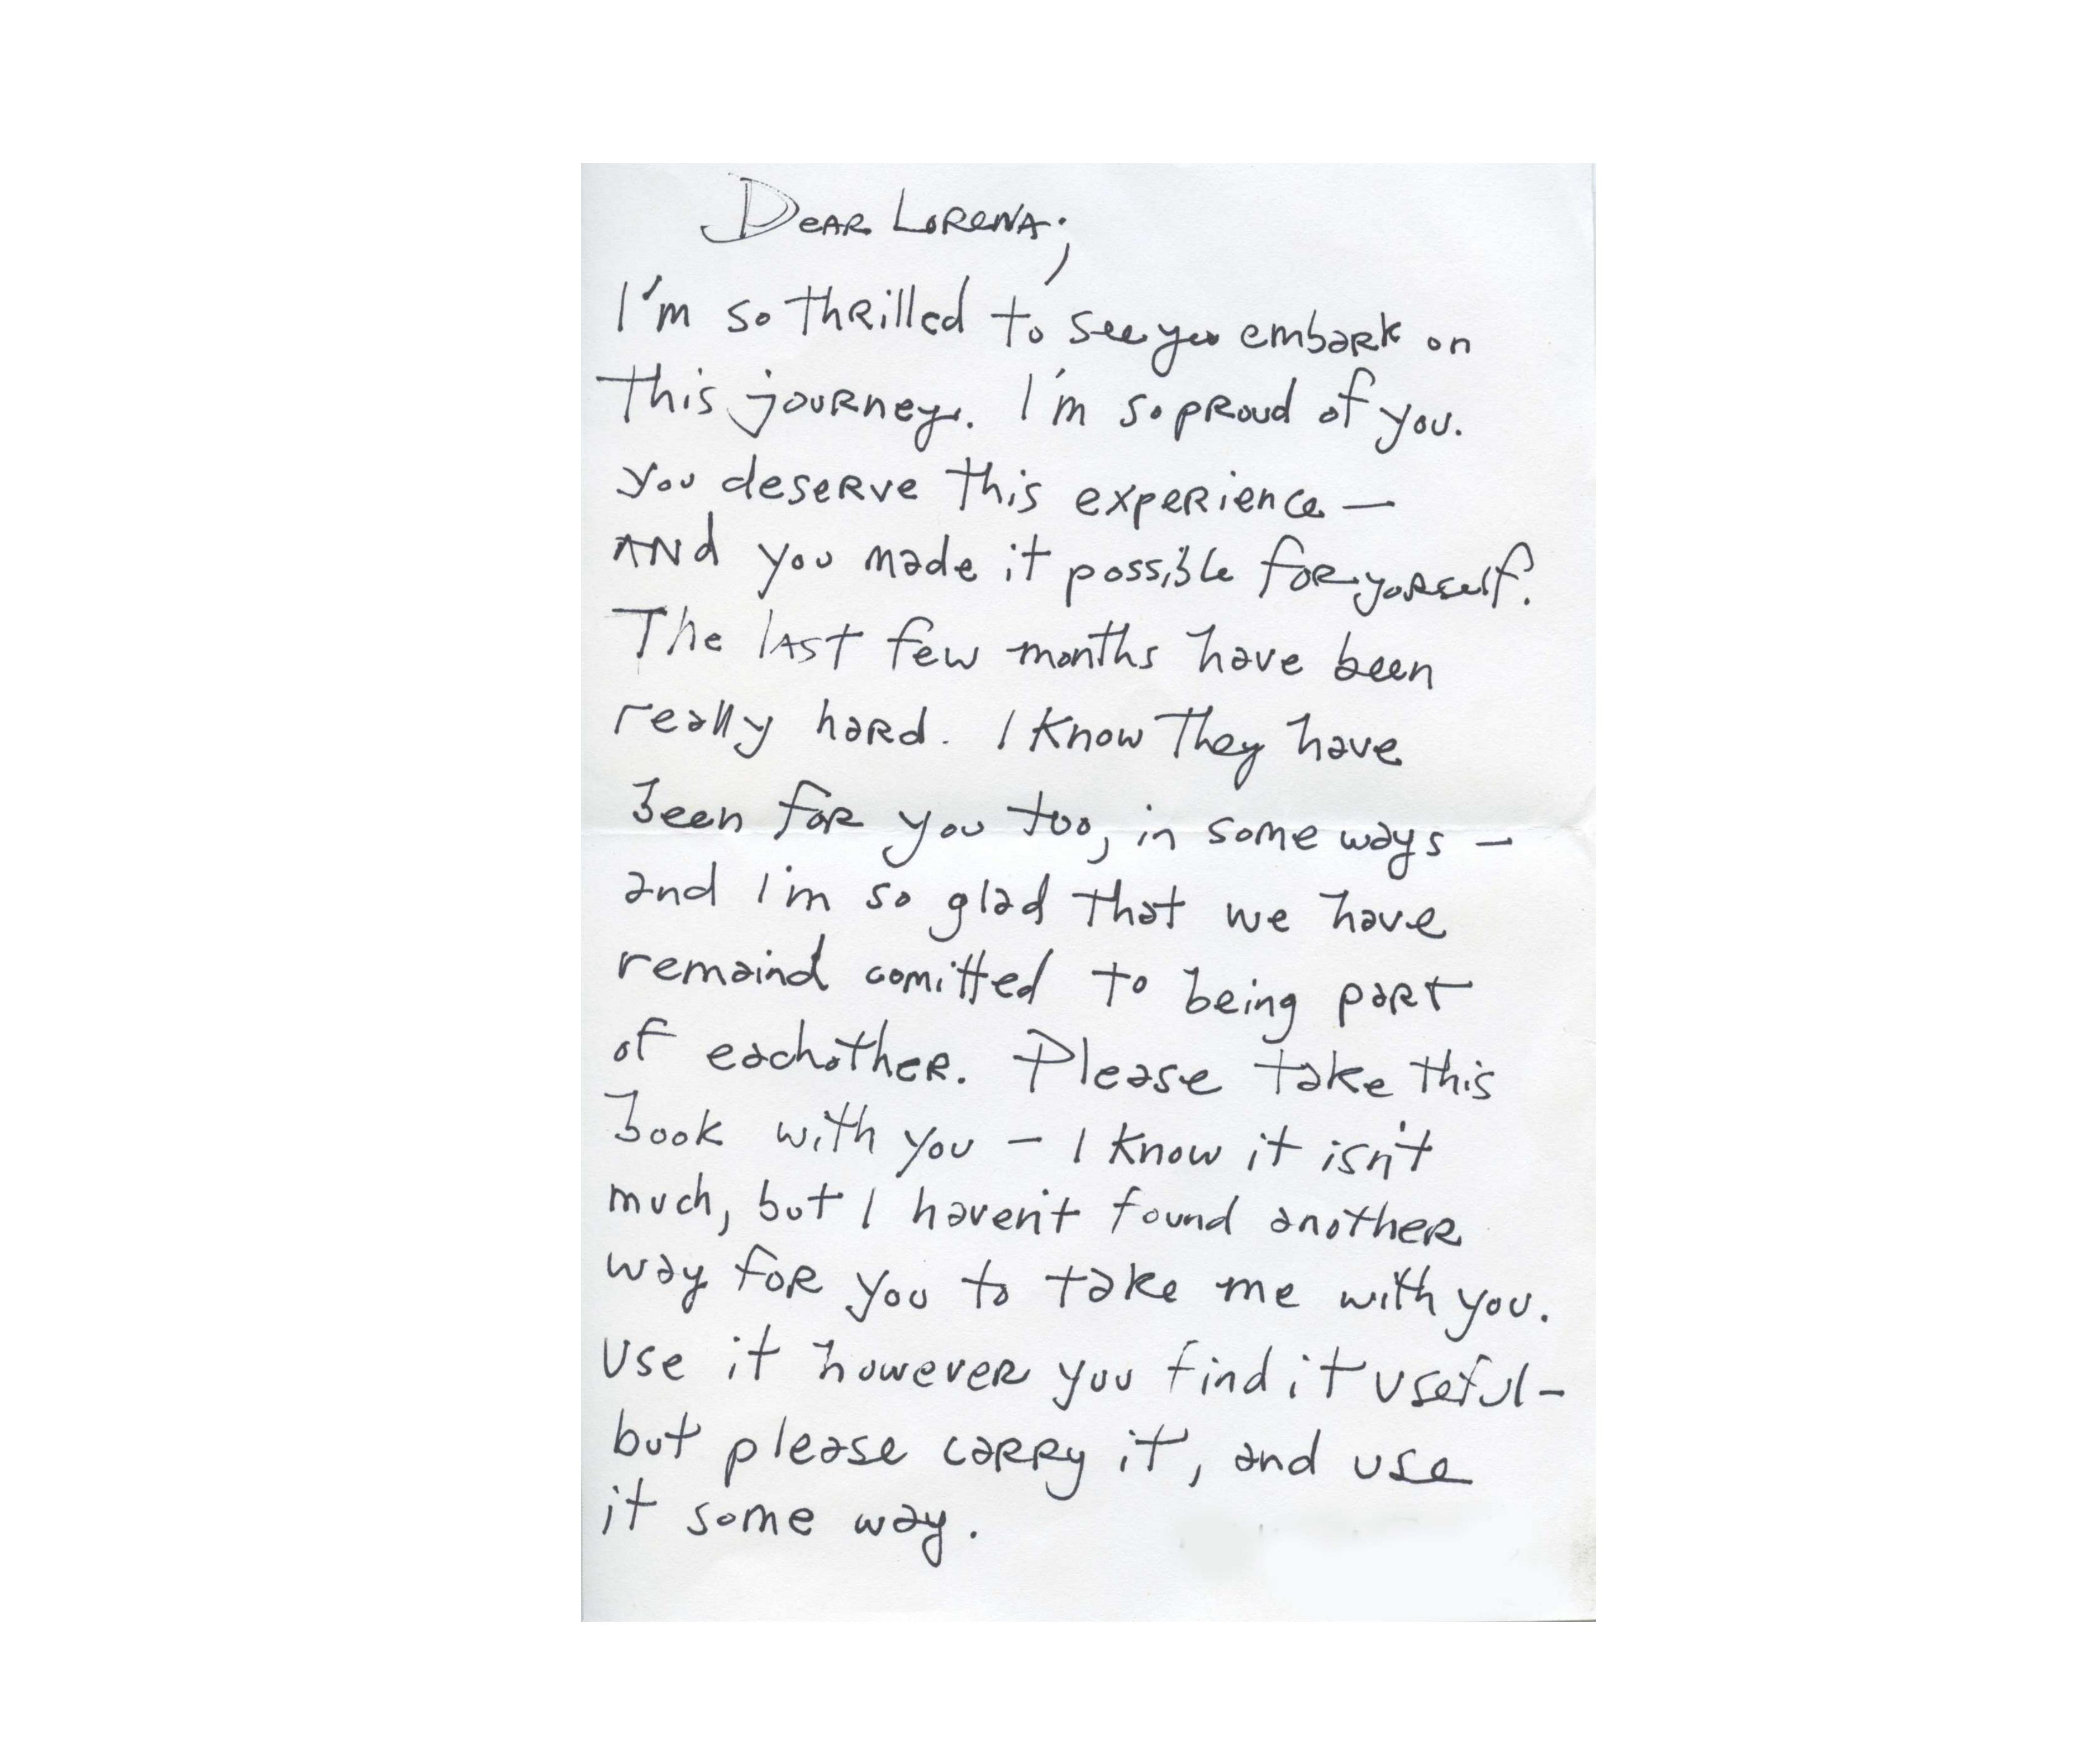 Dear Lorena;
I'm so thrilled to see you embark on
this journey. I'm so proud of you.
you deserve this experience —
AND you made it possible for yorself.
The last few months have been
really hard. I know they have
been for you too, in some ways —
and I'm so glad that we have
remaind comitted to being part
of eachother. Please take this
book with you — I know it isn't
much, but I haven't found another
way for you to take me with you.
Use it however you find it useful —
but please carry it, and use
it some way.